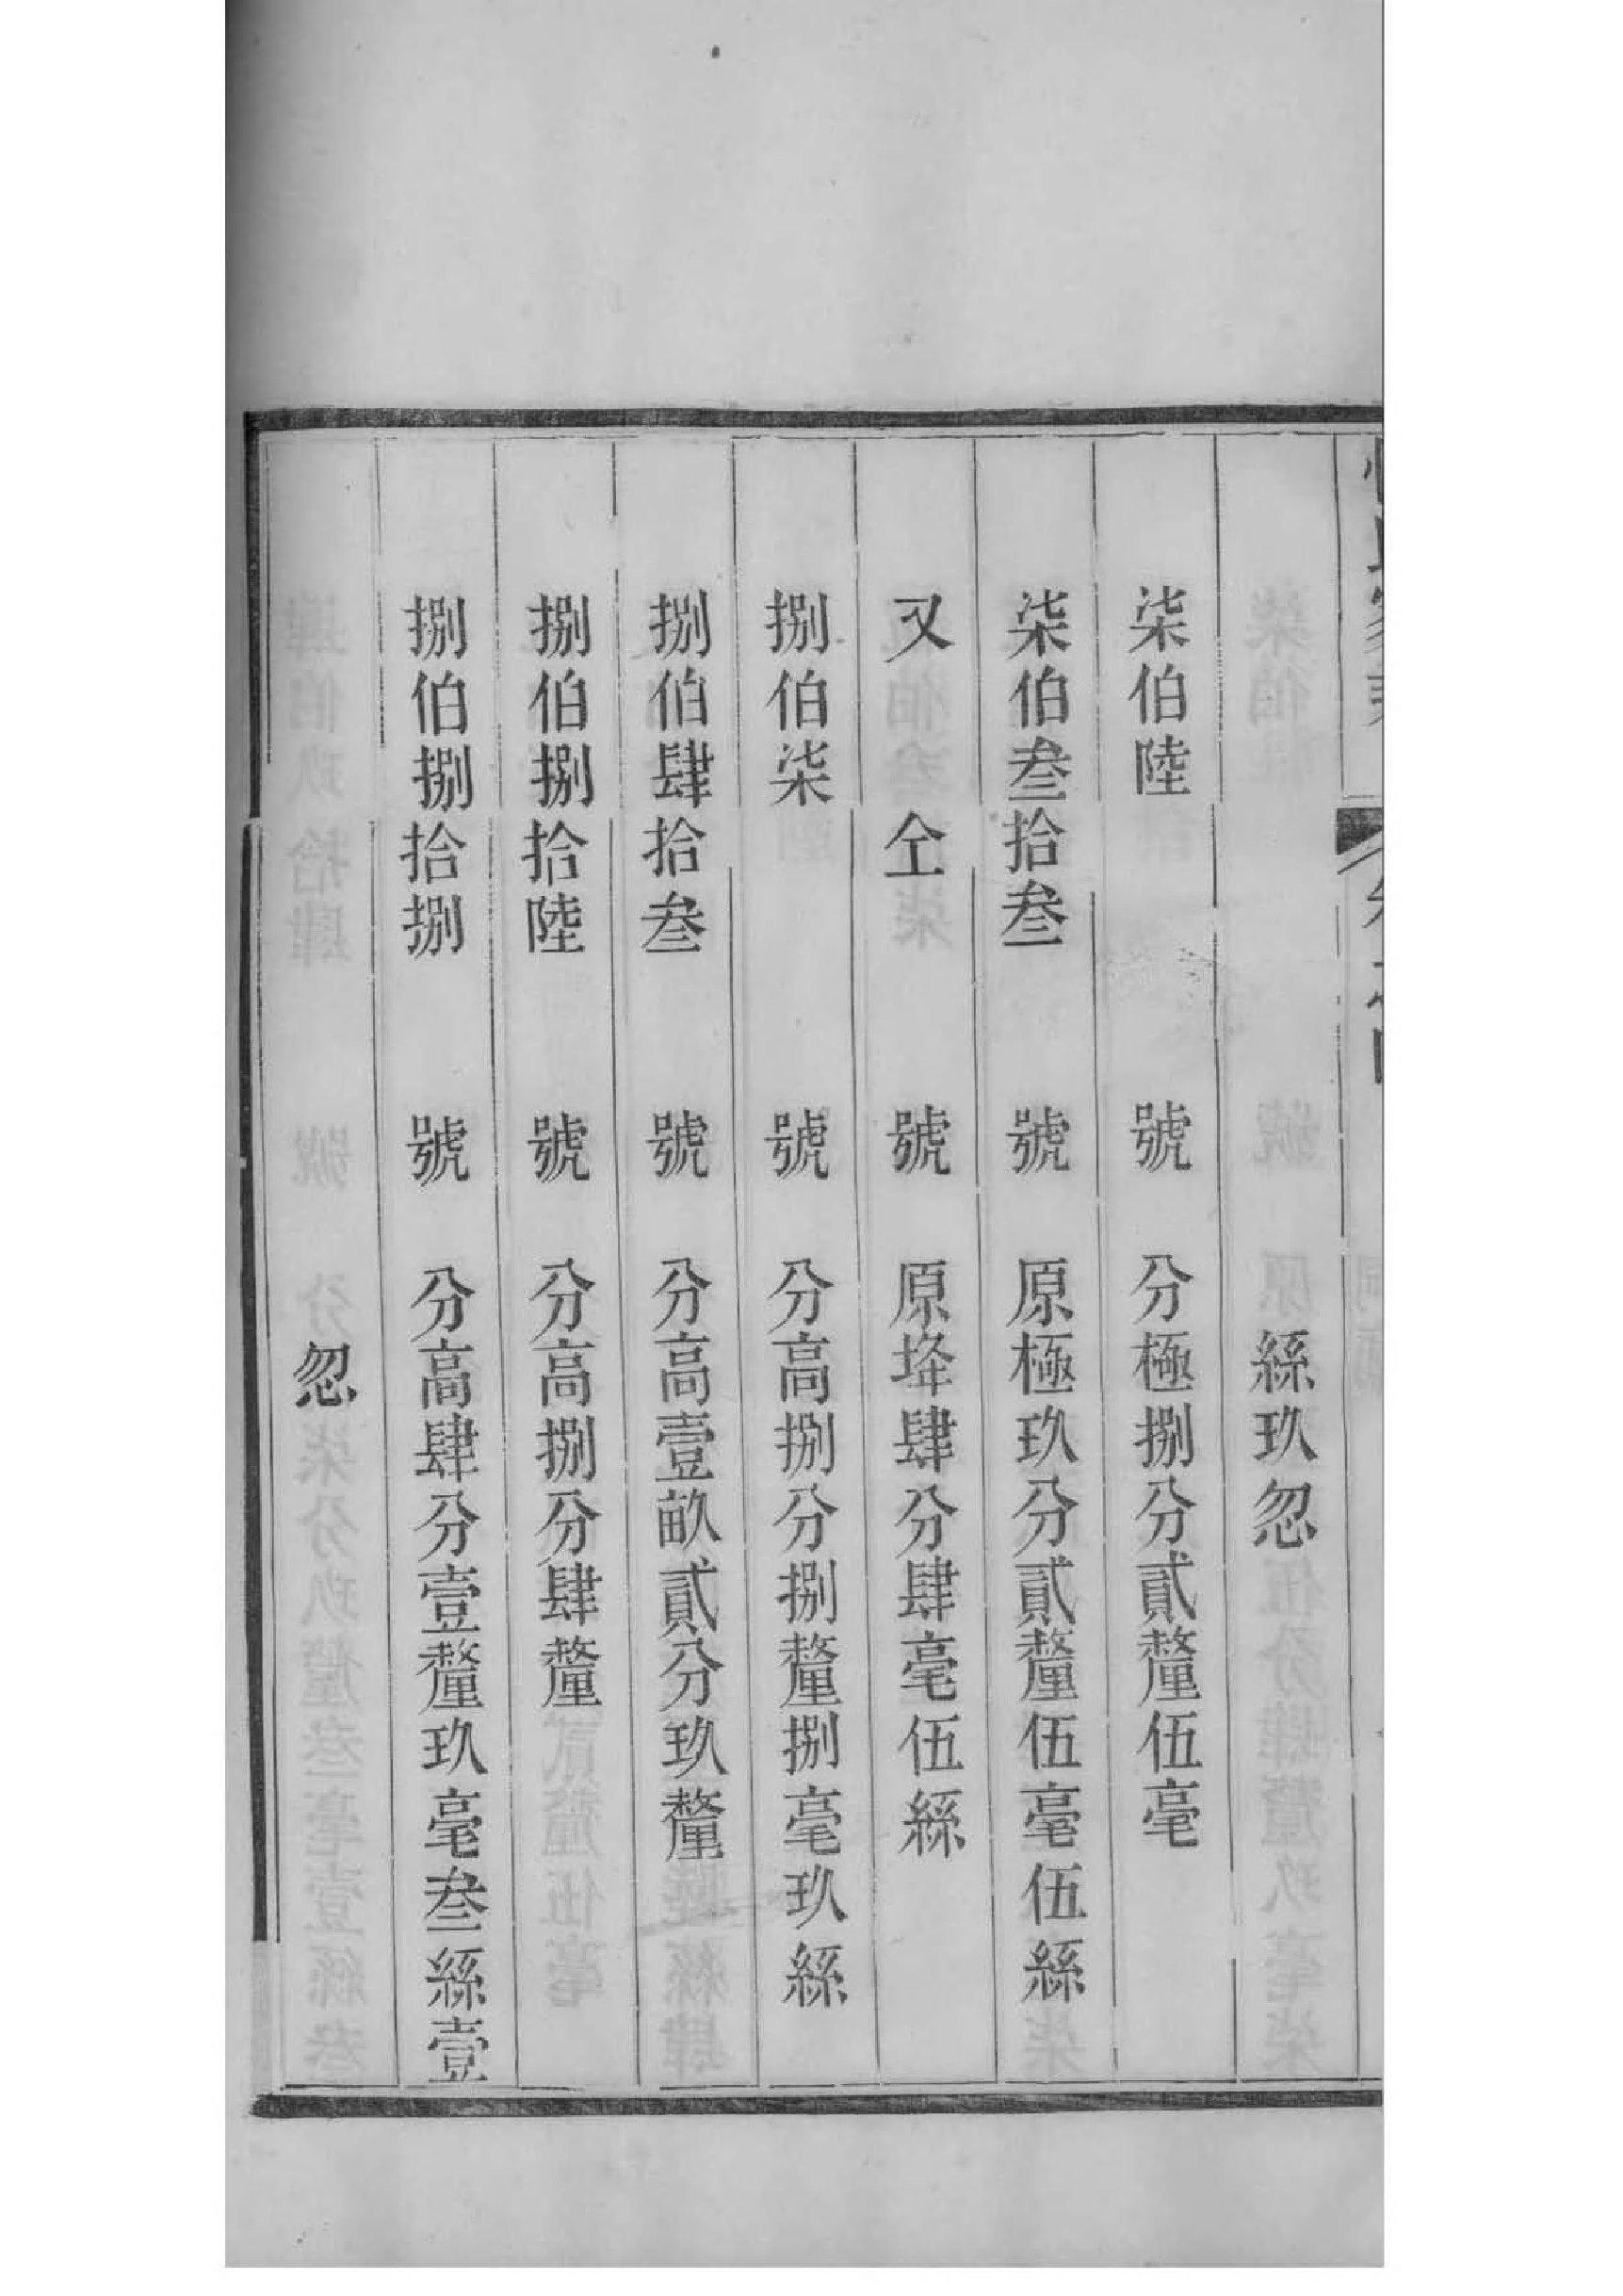 絲玖忽
柒伯陸 號 分極捌分貳釐伍毫
柒伯叁拾叁 號 原極玖分貳釐伍毫伍絲
又 仝 號 原埄肆分肆毫伍絲
捌伯柒 號 分高捌分捌釐捌毫玖絲
捌伯肆拾叁 號 分高壹畝貳分玖釐
捌伯捌拾陸 號 分高捌分肆釐
捌伯捌拾捌 號 分高肆分壹釐玖毫叁絲壹
忽